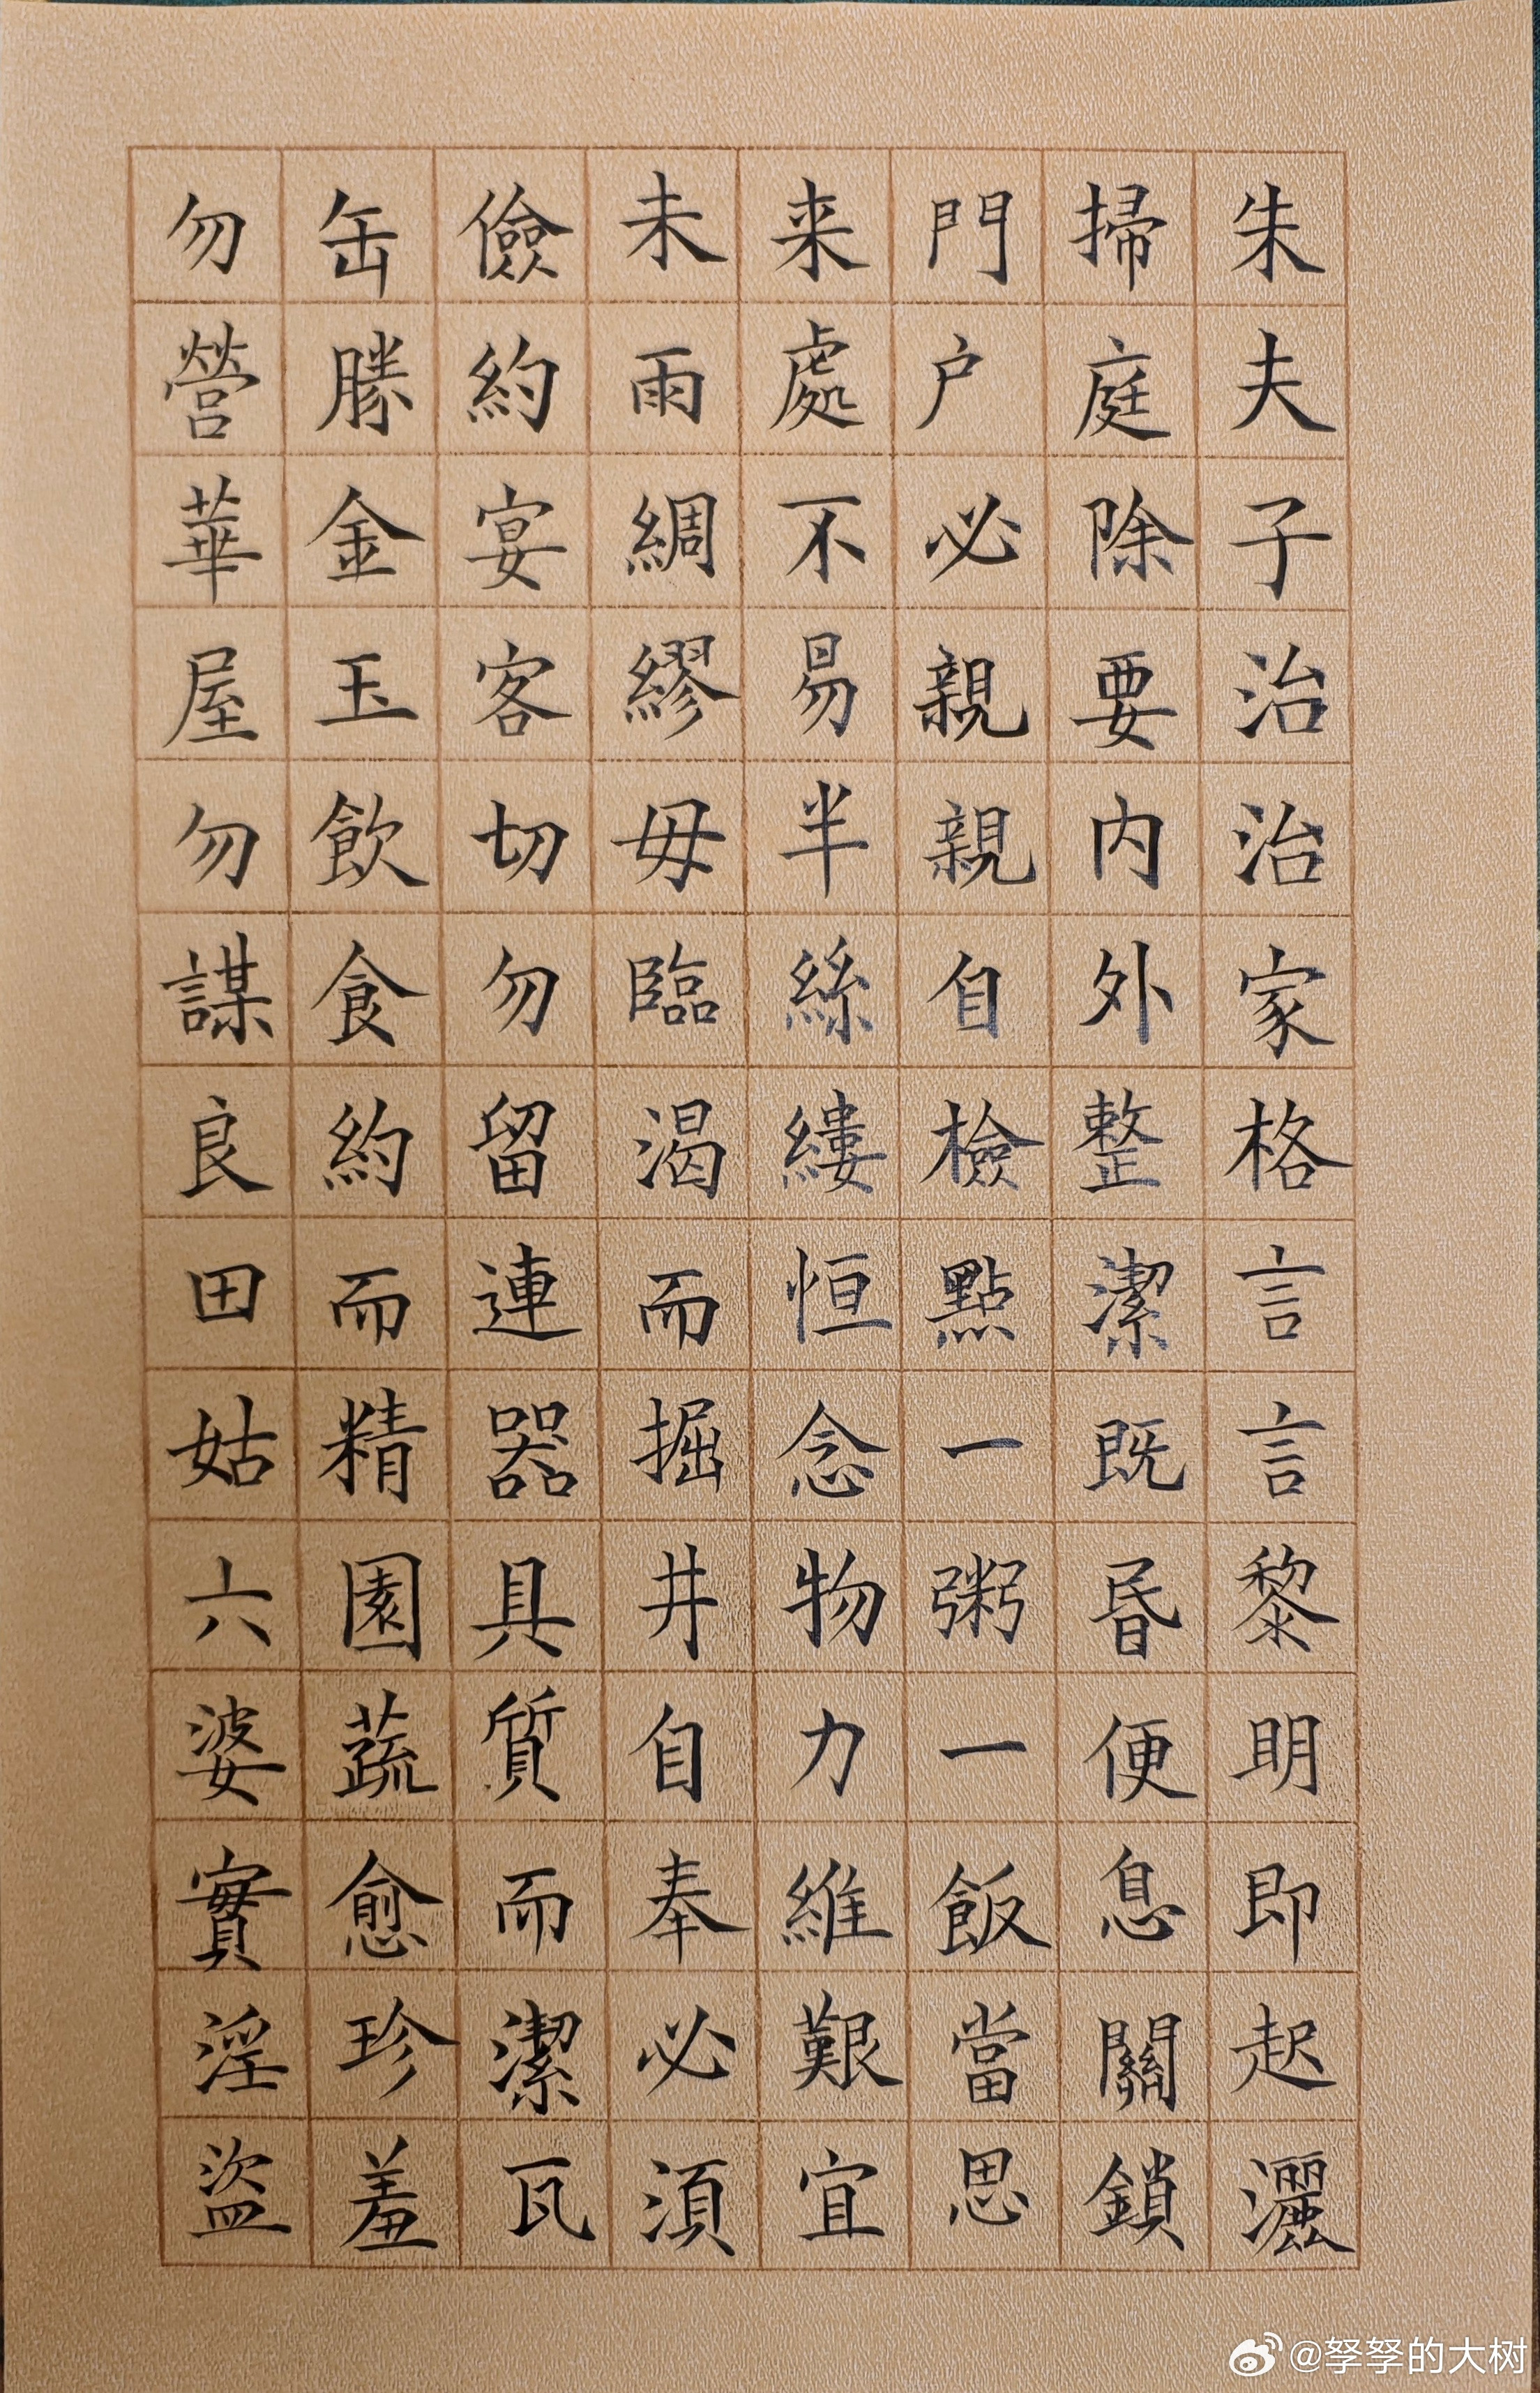 朱夫子治治家格言言黎明即起灑
掃庭除要内外整潔既昬便息關鎖
門户必親親自檢點一粥一飯當思
来處不易半絲縷恒念物力維艱宜
未雨綢繆毋臨渴而掘井自奉必須
儉約宴客切勿留連器具質而潔瓦
缶勝金玉飲食約而精園蔬愈珍羞
勿營華屋勿謀良田姑六婆實淫盜
@孥孥的大树